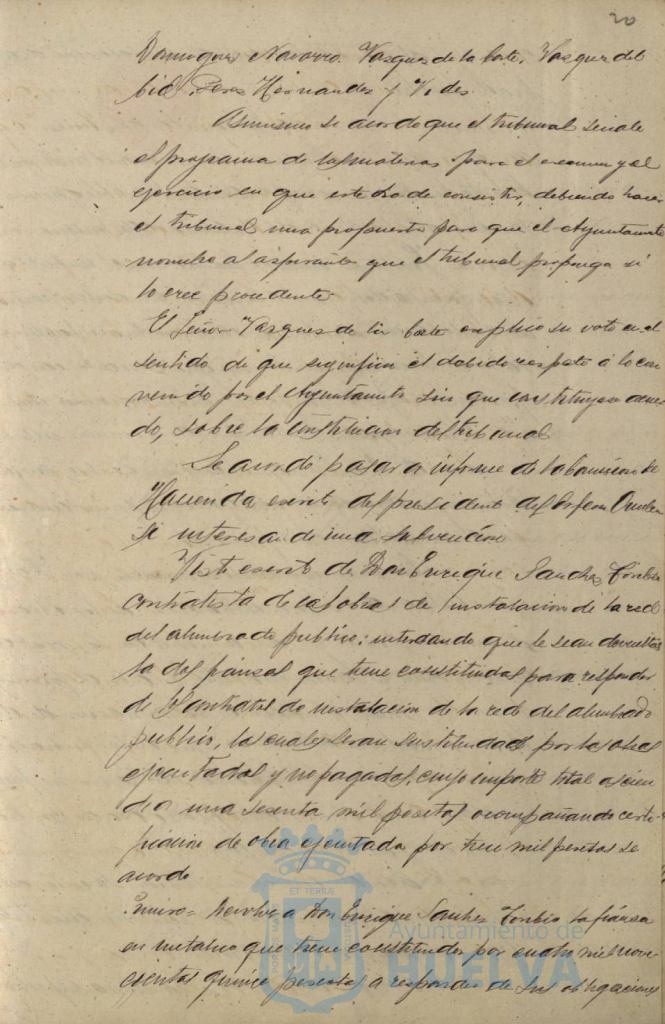 20
Domingues Navarro. Vasques de la Corte, Vasques del
Cid Peres Hernandez y Vides.
Asimismo se acordo que el tribunal señale
el programa de las materias para el examen y el
ejercicio en que este ha de consistir, debiendo hacer
el tribunal una propuesta para que el Ayuntamiento
nombre al aspirante que el tribunal proponga si
lo cree procedente.
El Señor Vasques de la Corte explico su voto en el
sentido de que significa el debido respeto a lo con
venido por el Ayuntamiento sin que constituya acuer
do, sobre la constitucion del tribunal
Se acordó pasar a informe de la Comision de
Hacienda escrito del presidente del Orfeon
interesando una subvención
Visto escrito de Don Enrique Sanches Toribio
contratista de las obras de instalacion de la red
del alumbrado publico; interesando que le sean devueltas
las dos fiansas que tiene constituidas para responder
de contratos de instalacion de la red del alumbrado
publico, las cuales seran sustituidas por las obras
ejecutadas y no pagadas, cuyo importe total ascien
de a una sesenta mil pesetas acompañando certi
ficacion de obra ejecutada por trece mil pesetas se
acordo
Primero = Devolver a Don Enrique Sanches Toribio la fiansa
en metalico que tiene constituida por cuatro mil nove
cientas quince pesetas a responder de sus obligaciones
Ayuntamiento de
HUELVA